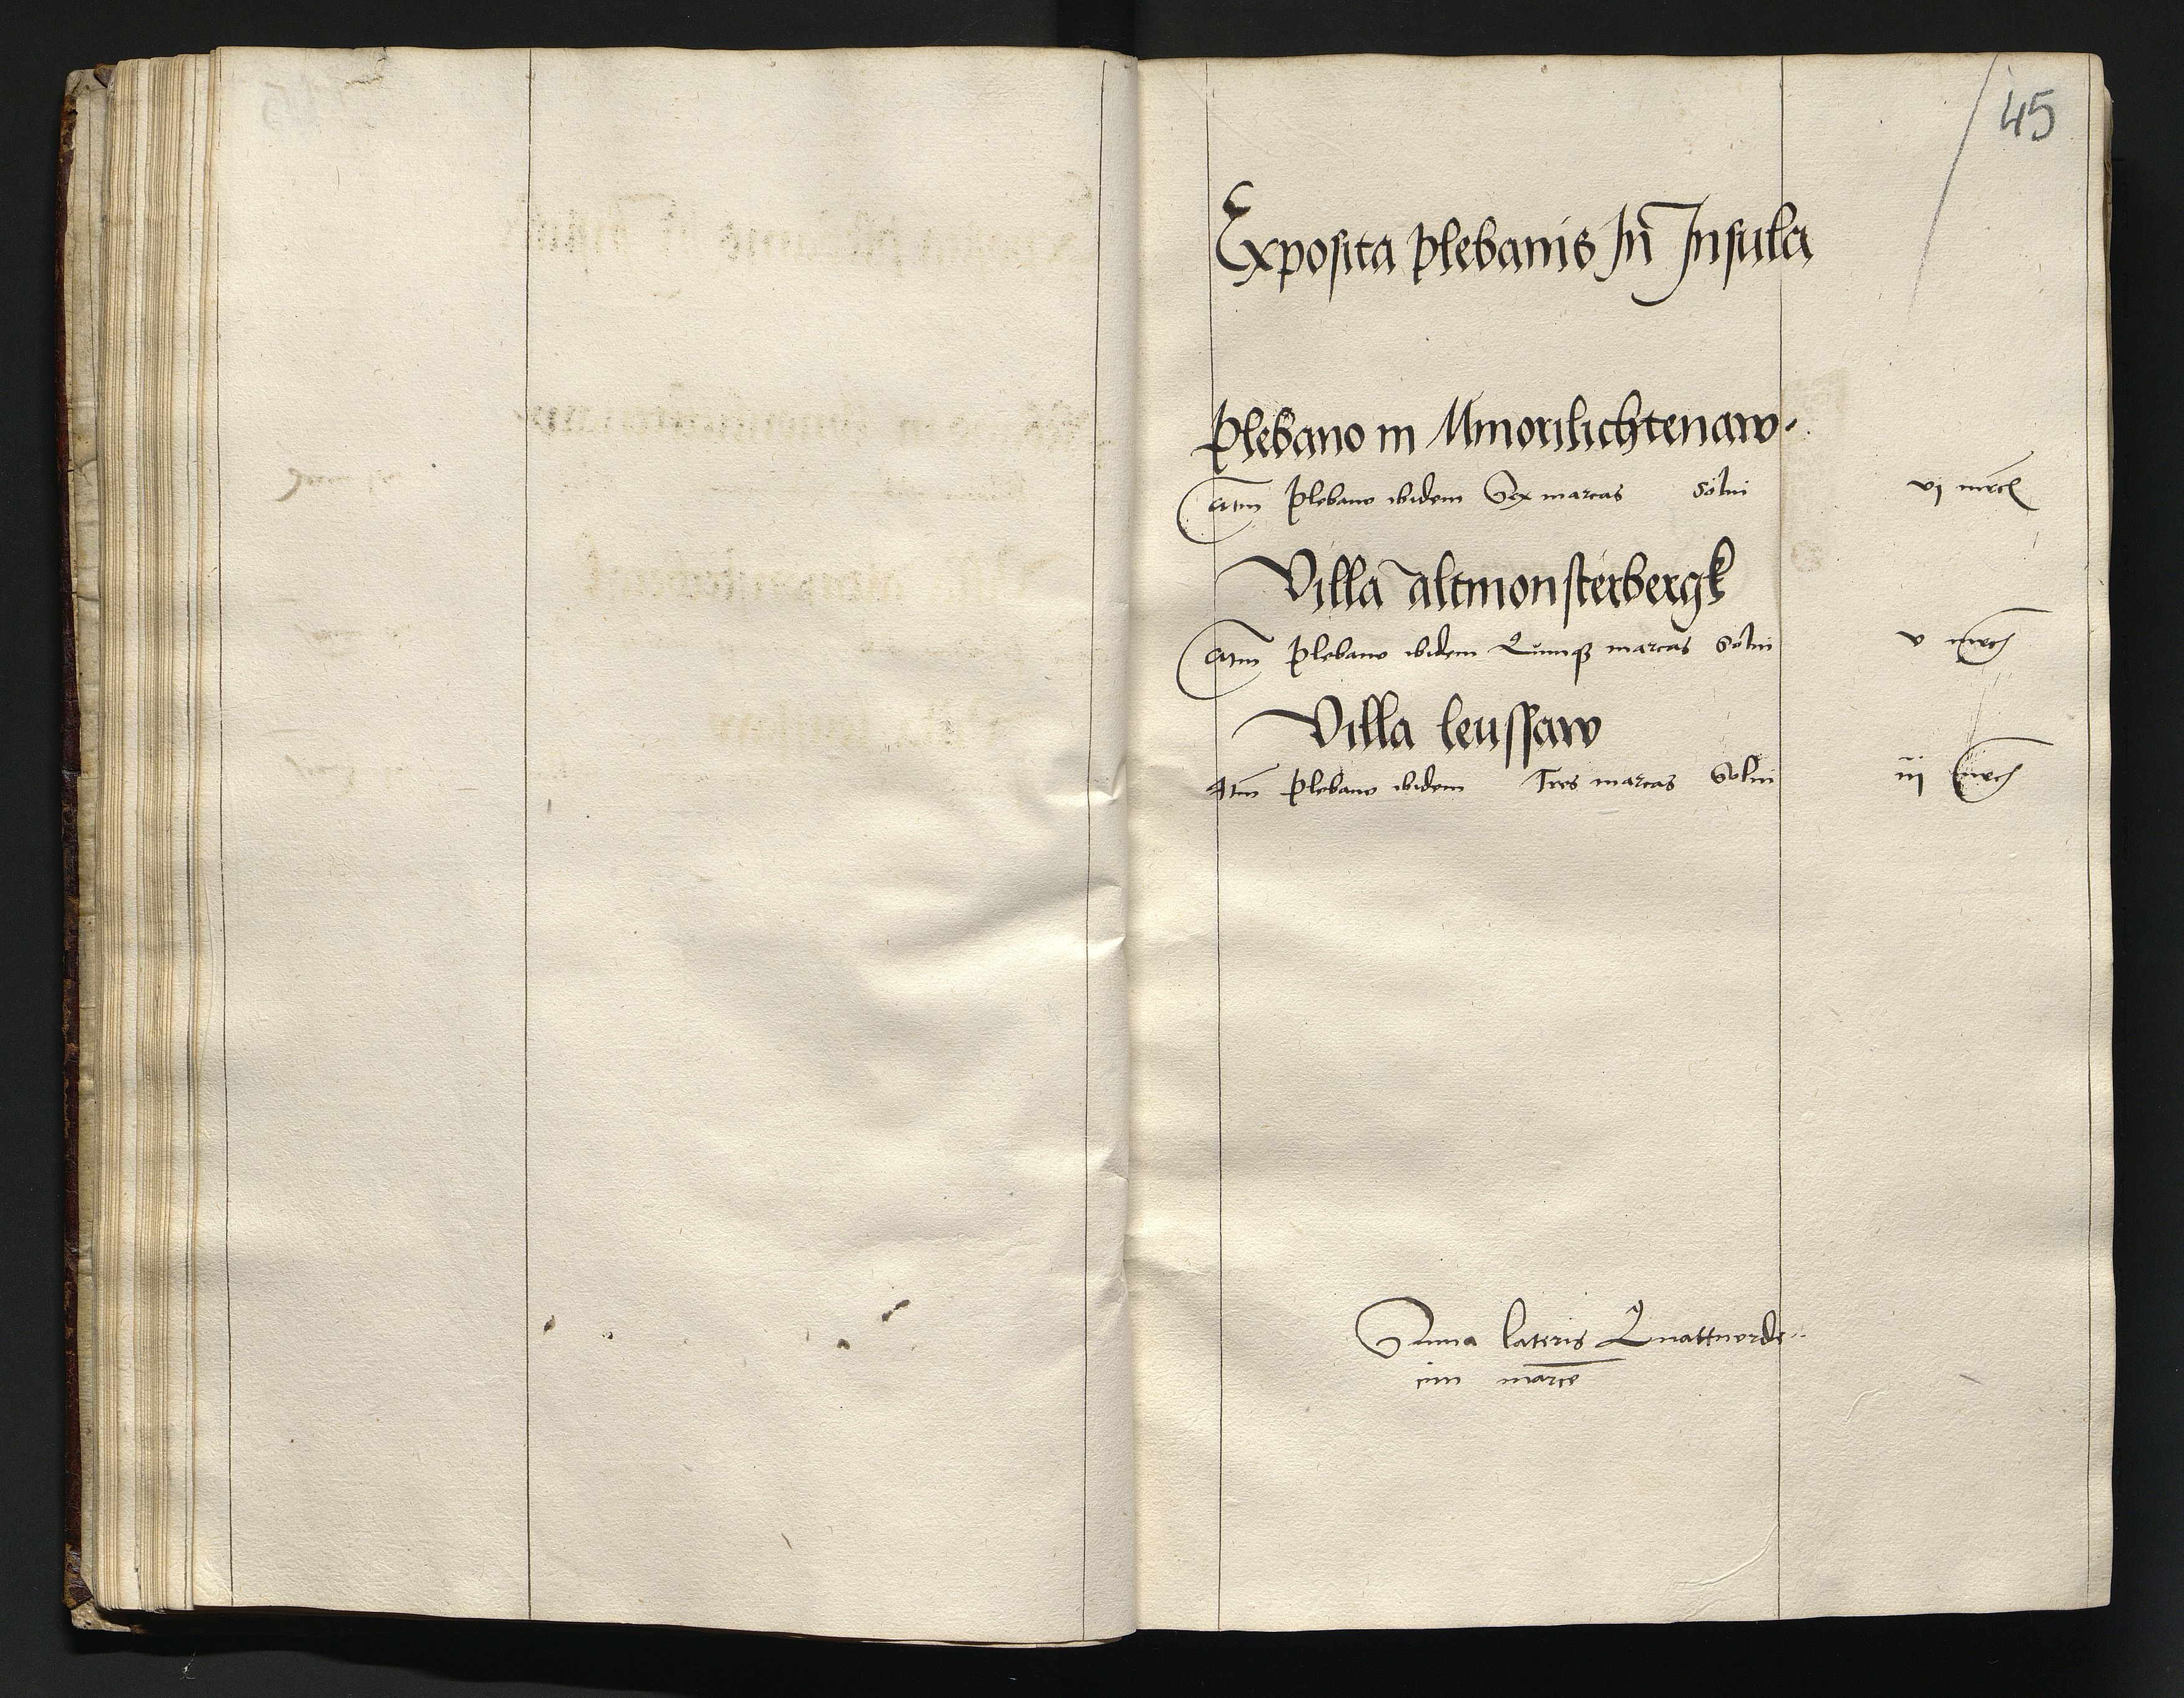 45
Exposita plebanis In Insula
plebano in Minorilichtenaw
Itm plebano ibidem Sex marcas Solui vj mrc
Villa altmonsterbergk
Itm plebano ibidem Quinqz marcas Solui v mrc
Villa leussaw
Itm plebano ibidem Tres marcas Solui iij mrc
Suma lateris Quattuorde
cim marce